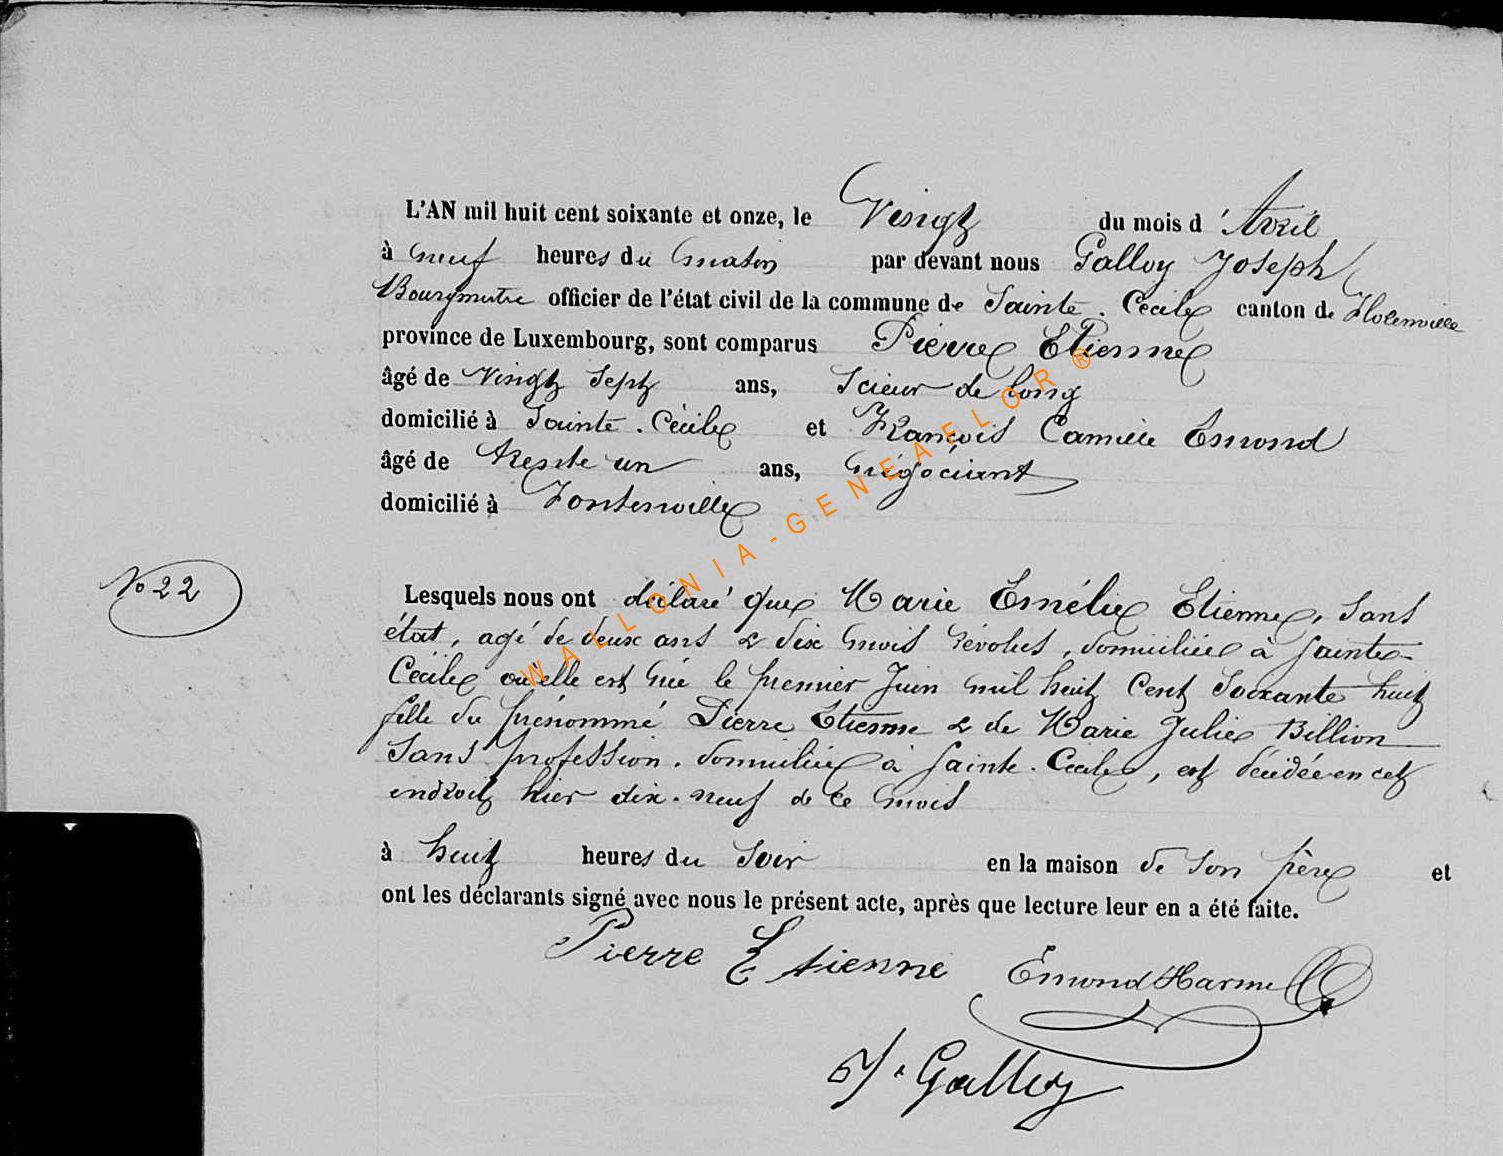 L'AN mil huit cent soixante et onze, le Vingt du mois d'Avril
à neuf heures du matin par devant nous Galloy Joseph
Bourgmestre officier de l'état civil de la commune de Sainte-Cécile canton de Florenville
province de Luxembourg, sont comparus Pierre Etienne
âgé de Vingt Sept ans, Scieur de long
domicilié à Sainte-Cécile et François Camille Emond
âgé de trente un ans, négociant
domicilié à Fontenoille
No 22
Lesquels nous ont déclaré que Marie Emélie Etienne, sans
état, agé de deux ans & dix mois révolus, domiciliée à Sainte-
Cécile où elle est née le premier Juin mil huit cent soixante huit
fille du prénommé Pierre Etienne & de Marie Julie Billion
sans profession, domiciliée à Sainte-Cécile, est décédée en cet
endroit hier dix-neuf de ce mois
à huit heures du soir en la maison de son père et
ont les déclarants signé avec nous le présent acte, après que lecture leur en a été faite.
Pierre Etienne Emond Harmel
J. Galloy
WALLONIA-GENEAELOR®